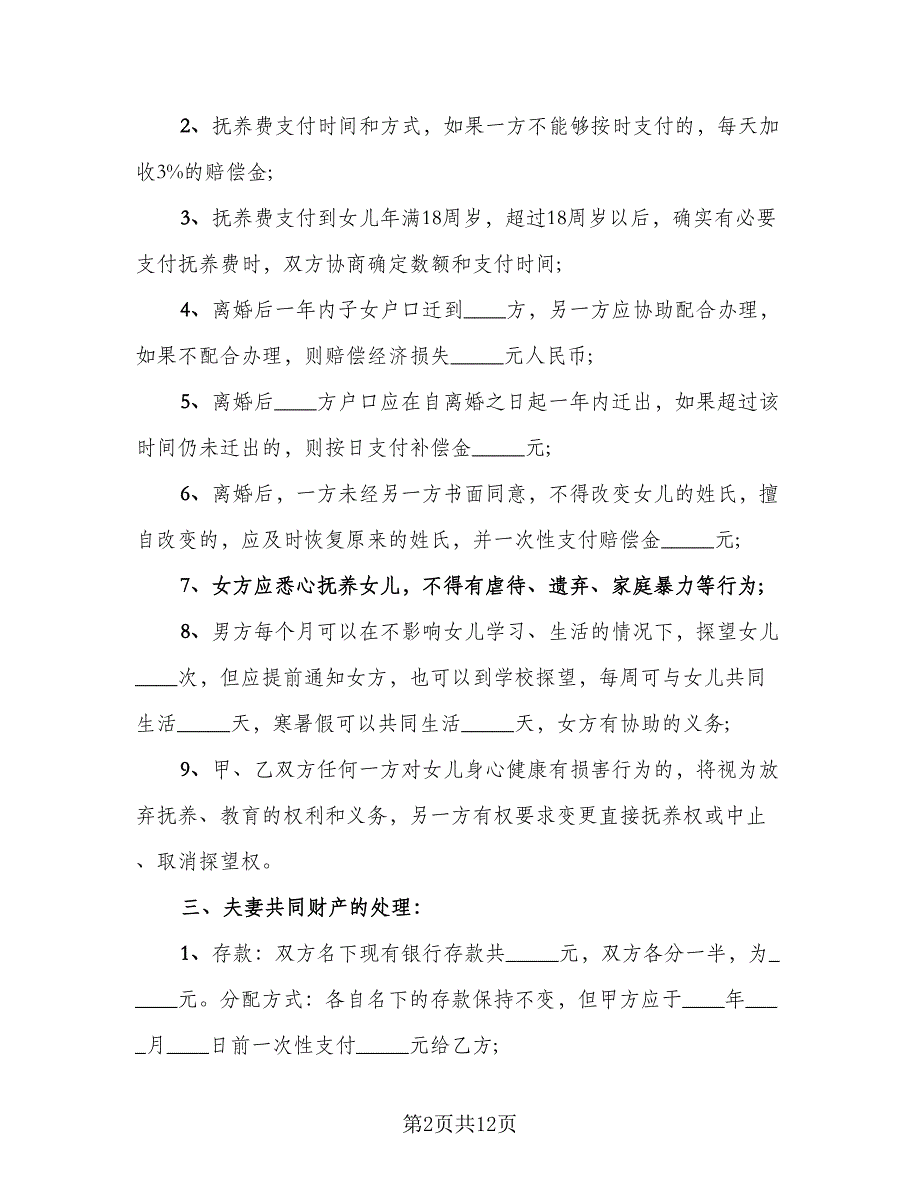 2、抚养费支付时间和方式，如果一方不能够按时支付的，每天加
收3%的赔偿金;
3、抚养费支付到女儿年满18周岁，超过18周岁以后，确实有必要
支付抚养费时，双方协商确定数额和支付时间;
4、离婚后一年内子女户口迁到____方，另一方应协助配合办理，
如果不配合办理，则赔偿经济损失_____元人民币;
5、离婚后____方户口应在自离婚之日起一年内迁出，如果超过该
时间仍未迁出的，则按日支付补偿金_____元;
6、离婚后，一方未经另一方书面同意，不得改变女儿的姓氏，擅
自改变的，应及时恢复原来的姓氏，并一次性支付赔偿金_____元;
7、女方应悉心抚养女儿，不得有虐待、遗弃、家庭暴力等行为;
8、男方每个月可以在不影响女儿学习、生活的情况下，探望女儿
____次，但应提前通知女方，也可以到学校探望，每周可与女儿共同
生活_____天，寒暑假可以共同生活_____天，女方有协助的义务;
9、甲、乙双方任何一方对女儿身心健康有损害行为的，将视为放
弃抚养、教育的权利和义务，另一方有权要求变更直接抚养权或中止
、取消探望权。
三、夫妻共同财产的处理：
1、存款：双方名下现有银行存款共_____元，双方各分一半，为_
____元。分配方式：各自名下的存款保持不变，但甲方应于____年___
_月____日前一次性支付_____元给乙方;
第2页共12页